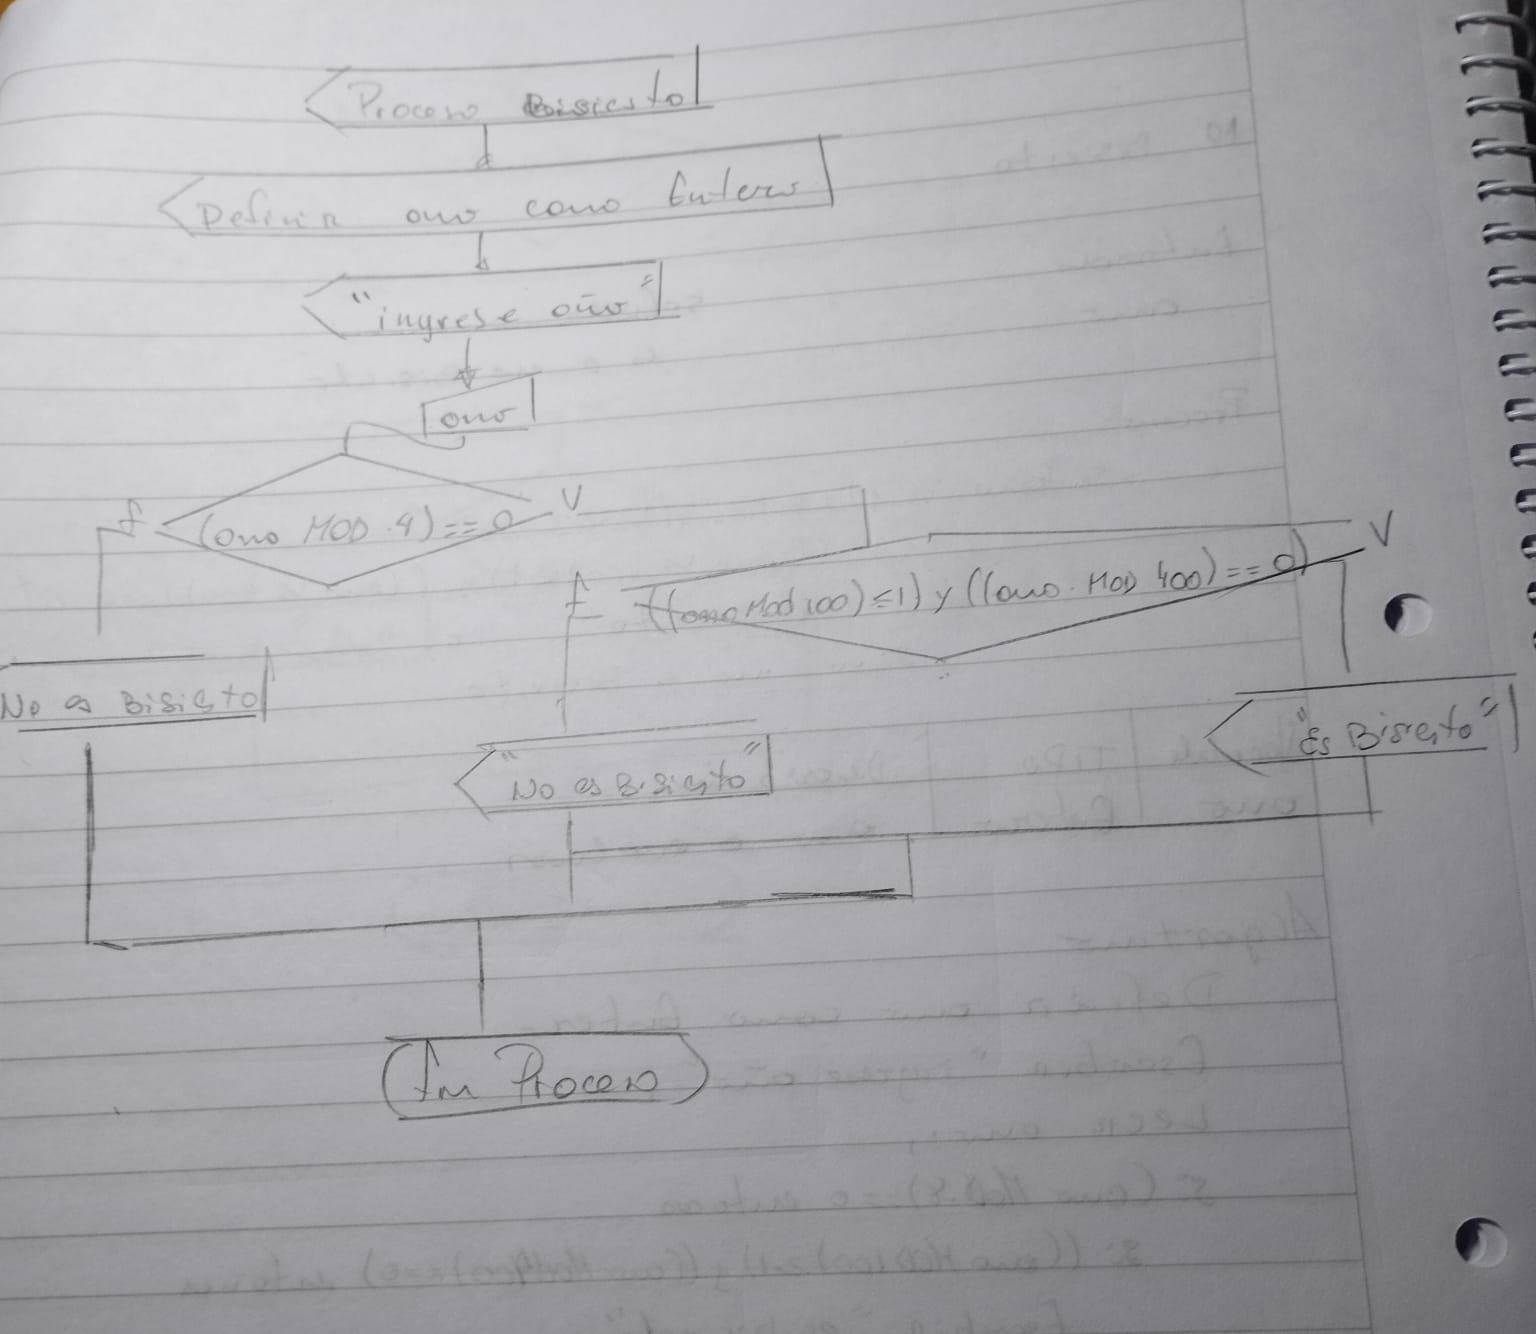 Proceso Bisiesto
Definir ano como Entero
"ingrese año"
ano
f (ano MOD 4) == 0 V
f ((ano Mod 100) ≤ 1) y ((ano MOD 400) == 0) V
No es Bisiesto
"No es Bisiesto"
"Es Bisiesto"
Fin Proceso